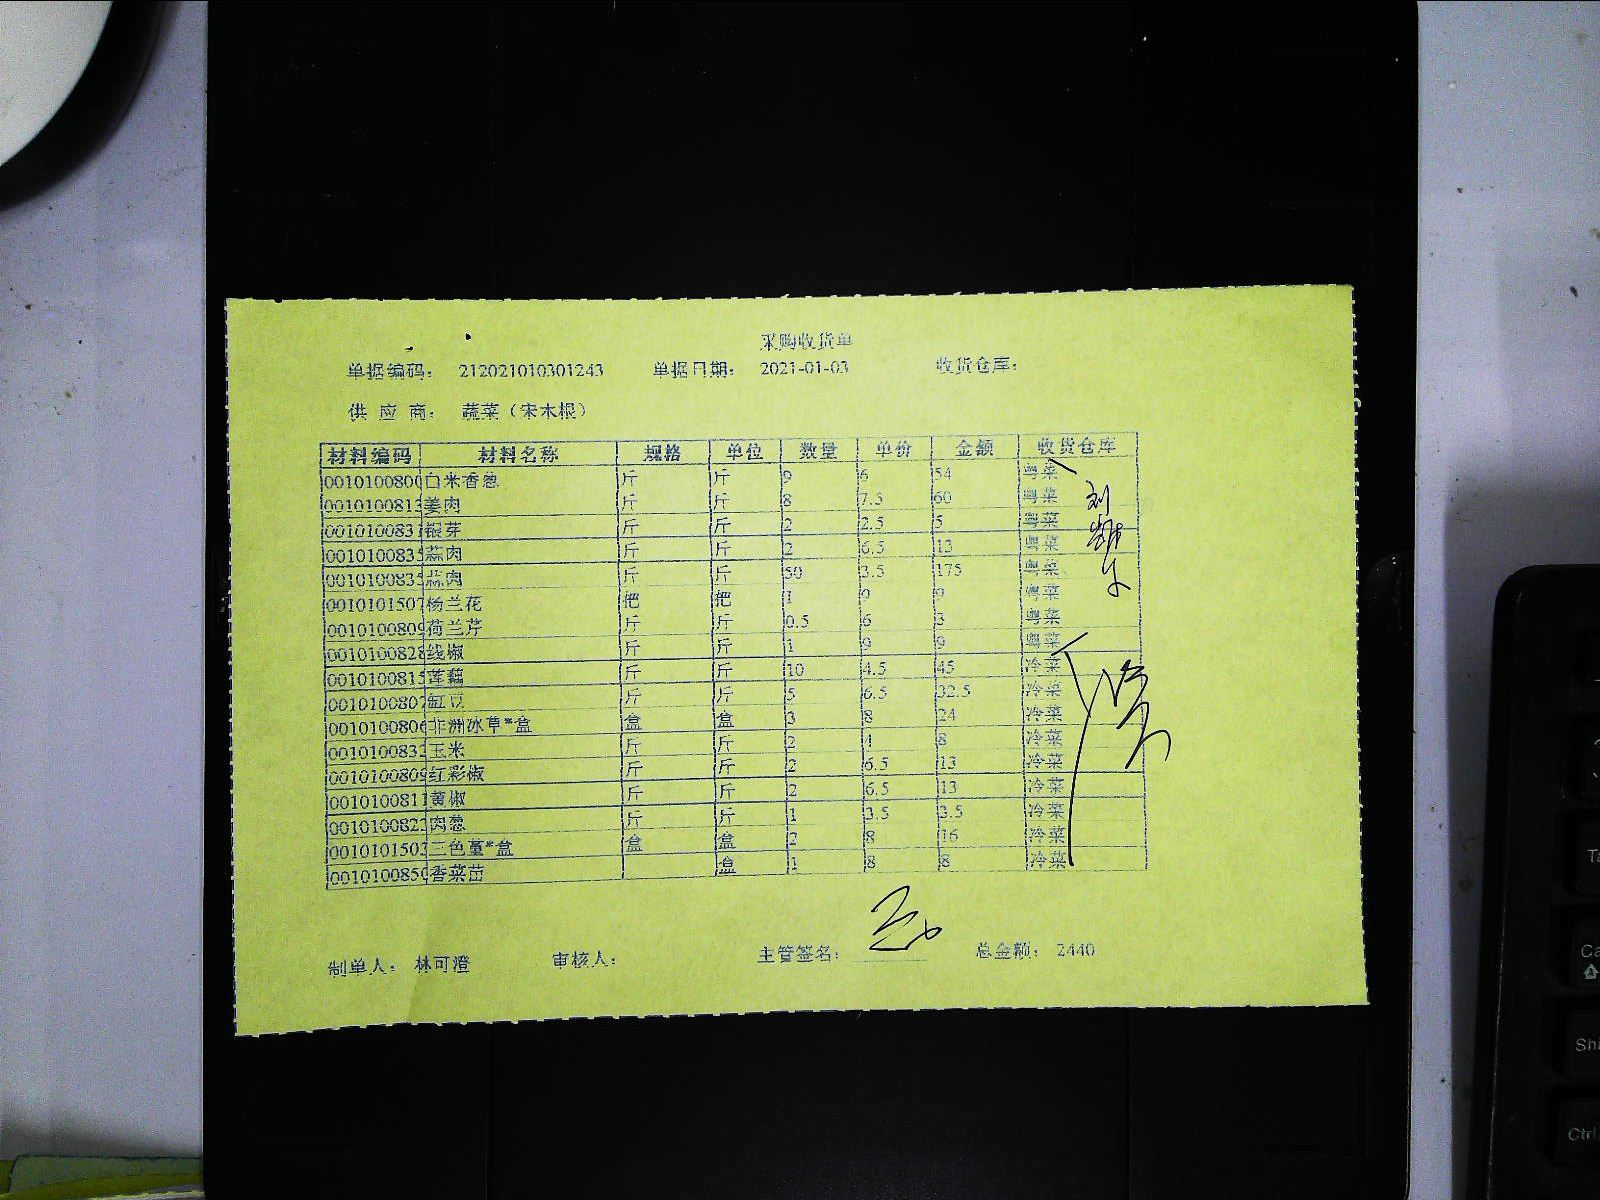 采购收货单
单据编码： 212021010301243 单据日期： 2021-01-03 收货仓库：
供 应 商： 蔬菜（宋木根）
材料编码 材料名称 规格 单位 数量 单价 金额 收货仓库
0010100800 白米香葱 斤 斤 9 6 54 粤菜
0010100813 姜肉 斤 斤 8 7.5 60 粤菜
001010083 银芽 斤 斤 2 2.5 5 粤菜
001010083 蒜肉 斤 斤 2 6.5 13 粤菜
001010083 斤 斤 50 3.5 175 粤菜
001010150 杨兰花 把 把 1 9 9 粤菜
001010080 荷兰芹 斤 斤 0.5 6 3 粤菜
001010082 线椒 斤 斤 1 9 9 粤菜
001010081 莲藕 斤 斤 10 4.5 45 冷菜
001010080 豇豆 斤 斤 5 6.5 32.5 冷菜
001010080 非洲冰草*盒 盒 盒 3 8 24 冷菜
001010083 玉米 斤 斤 2 4 8 冷菜
001010080 红彩椒 斤 斤 2 6.5 13 冷菜
001010081 黄椒 斤 斤 2 6.5 13 冷菜
001010082 肉葱 斤 斤 1 3.5 3.5 冷菜
001010150 三色堇*盒 盒 盒 2 8 16 冷菜
001010085 香菜苗 盒 1 8 8 冷菜
制单人： 林可澄 审核人： 主管签名： 总金额： 2440
Ctrl